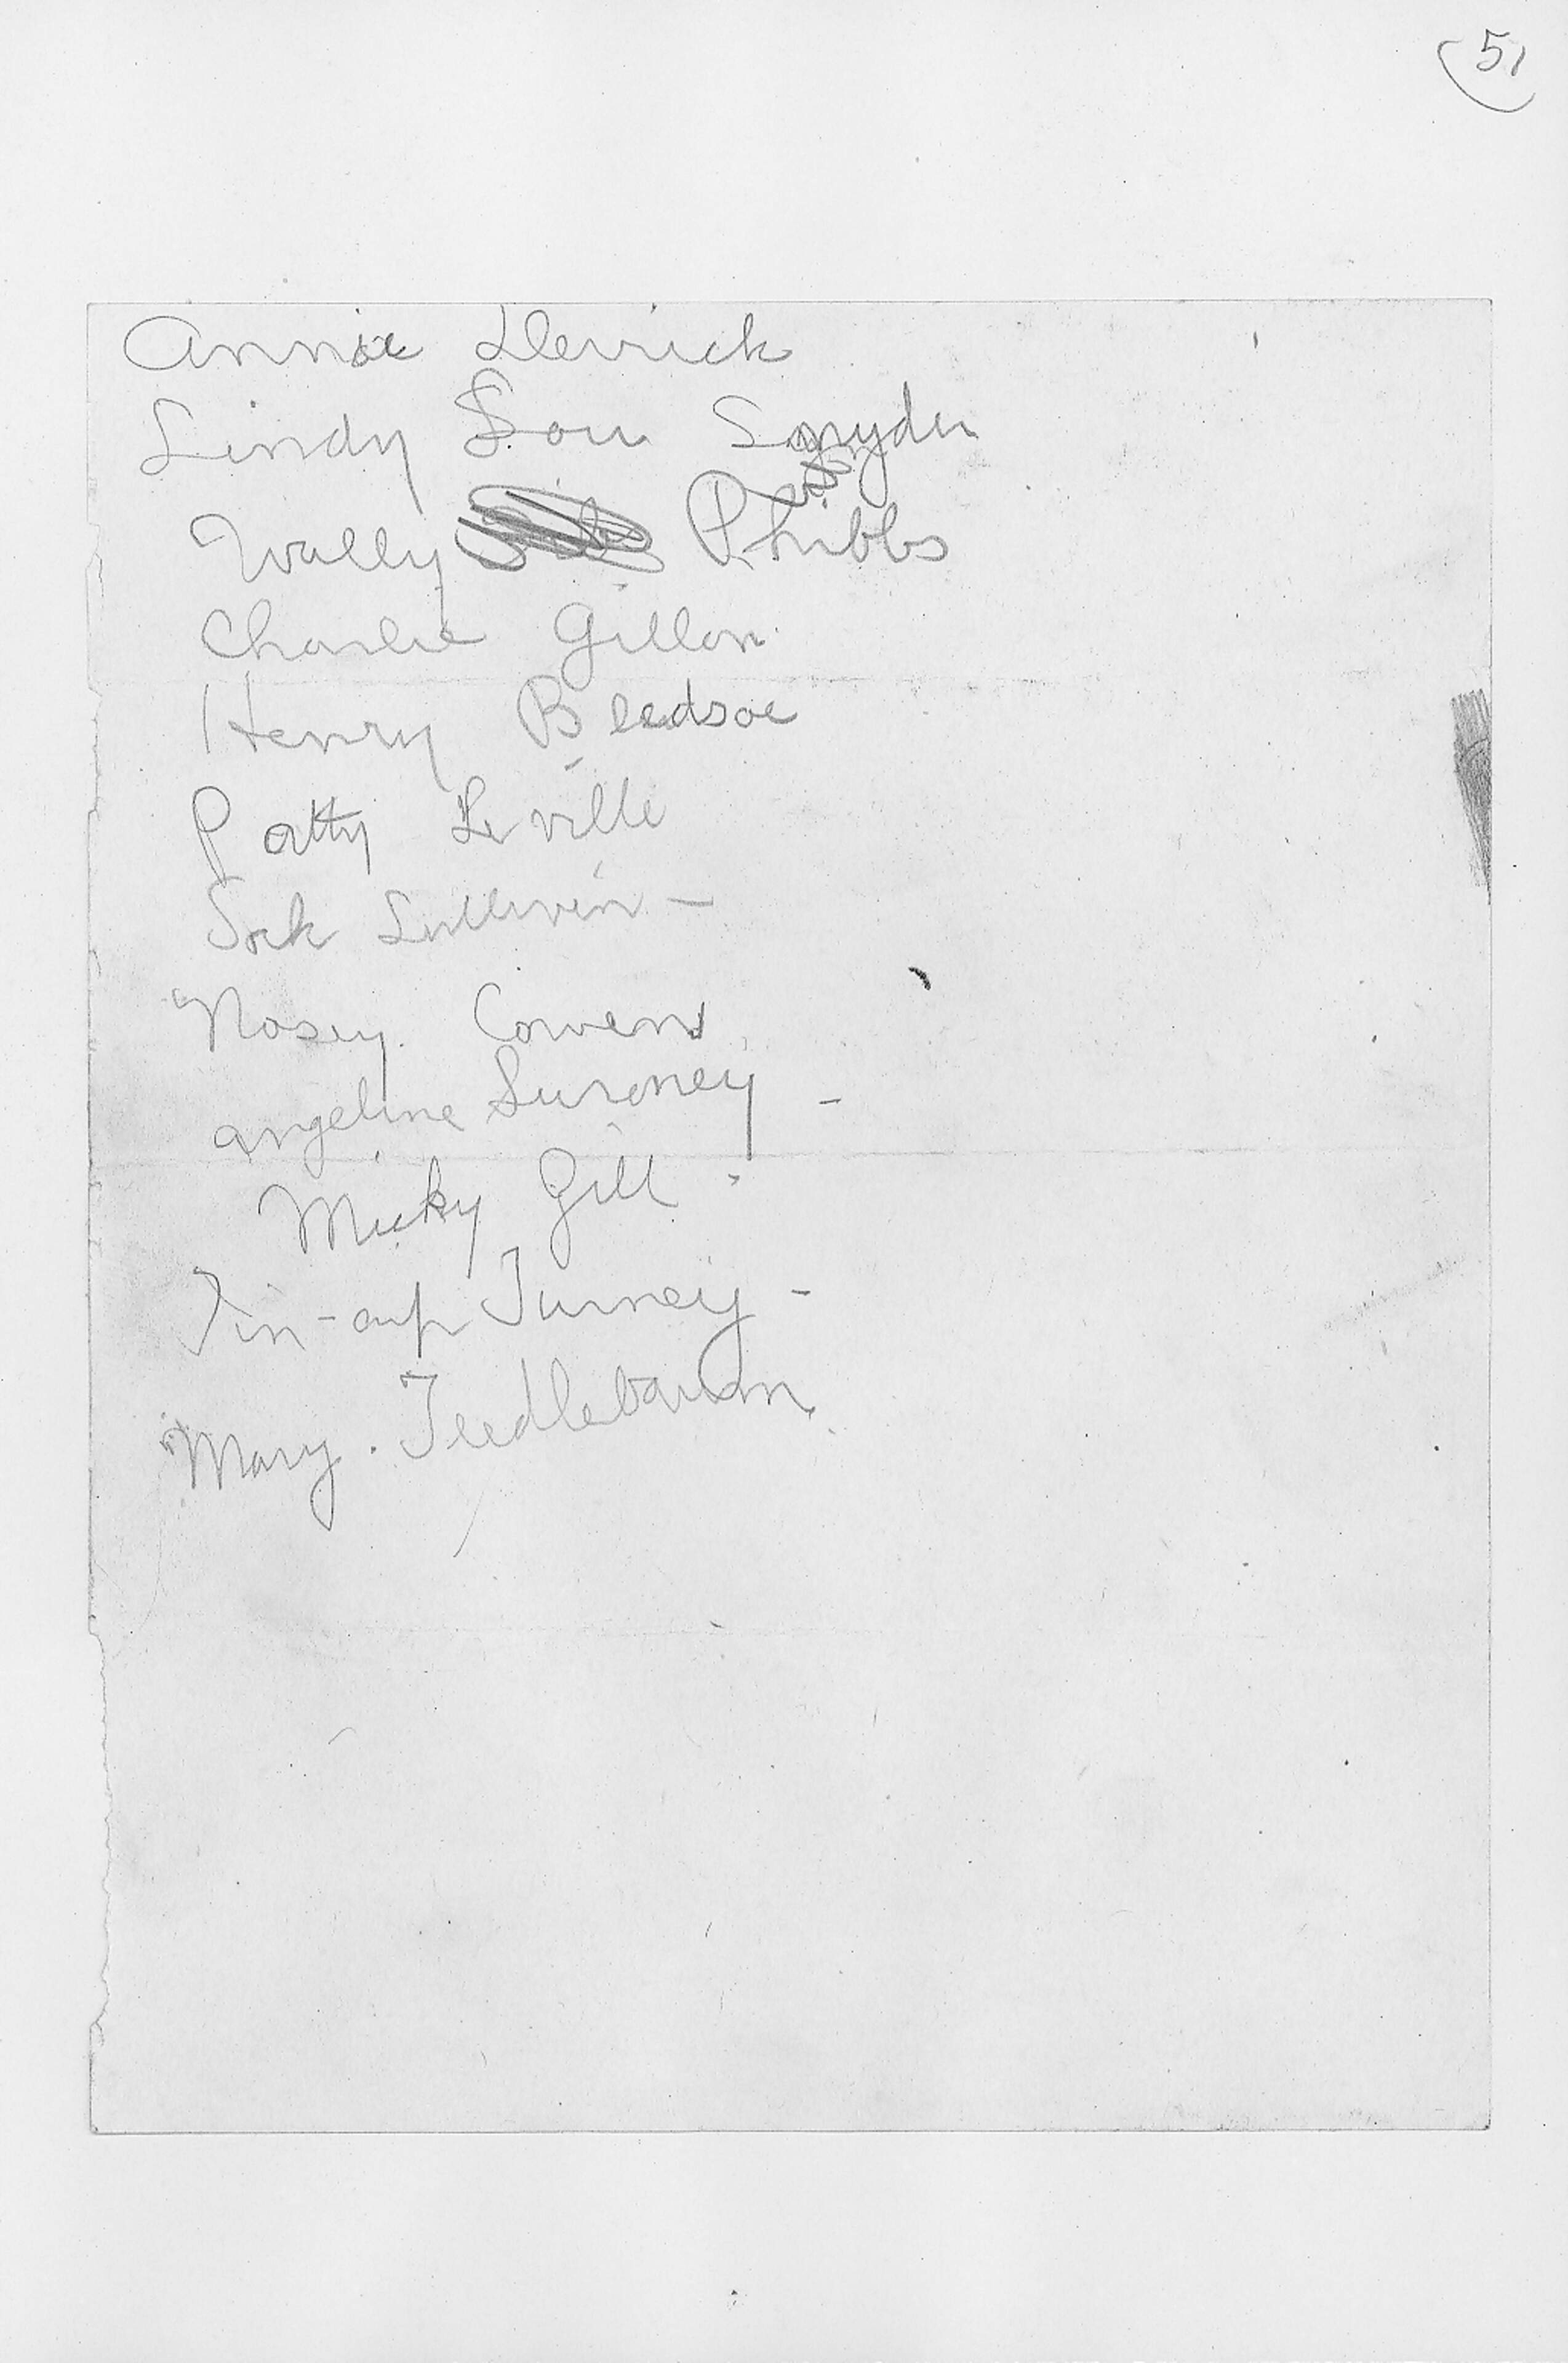 51
Annie Derrick
Lindy Lou Snyder
Wally Phibbs
Charlie Gillon
Henry Bledsoe
Patty Leville
Sock Sulliven -
Nosey Cowen
Angeline Suroney -
Micky Gill
Tin-cup Turney -
Mary Teedlebaum